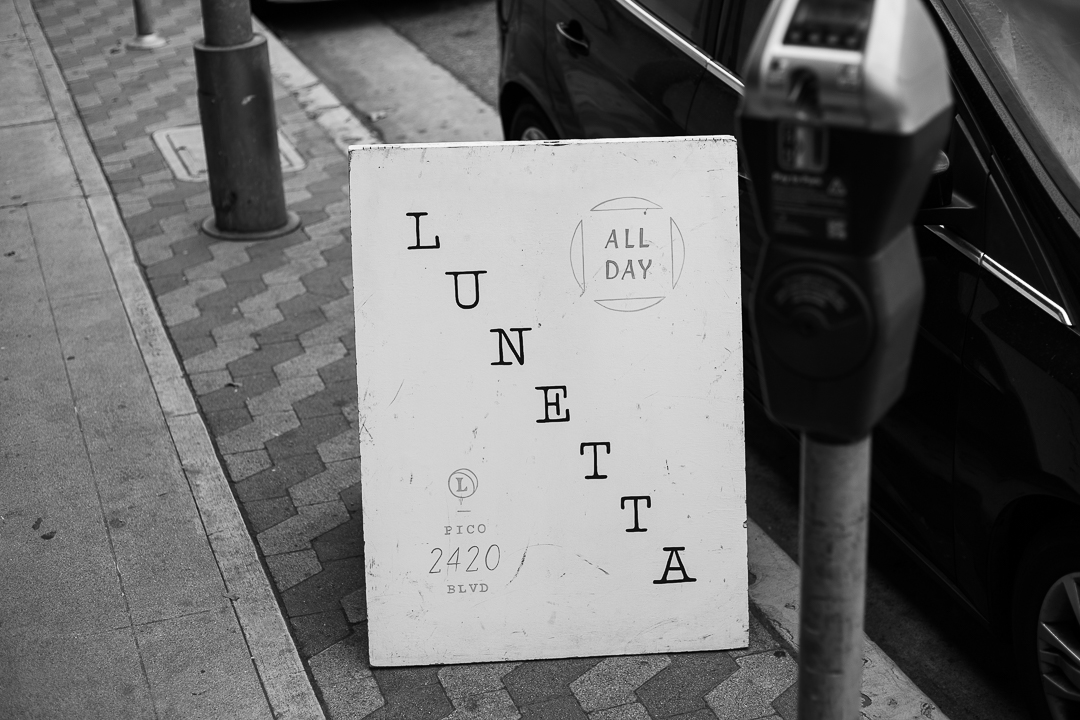 LUNETTA
ALL
DAY
L
PICO
2420
BLVD